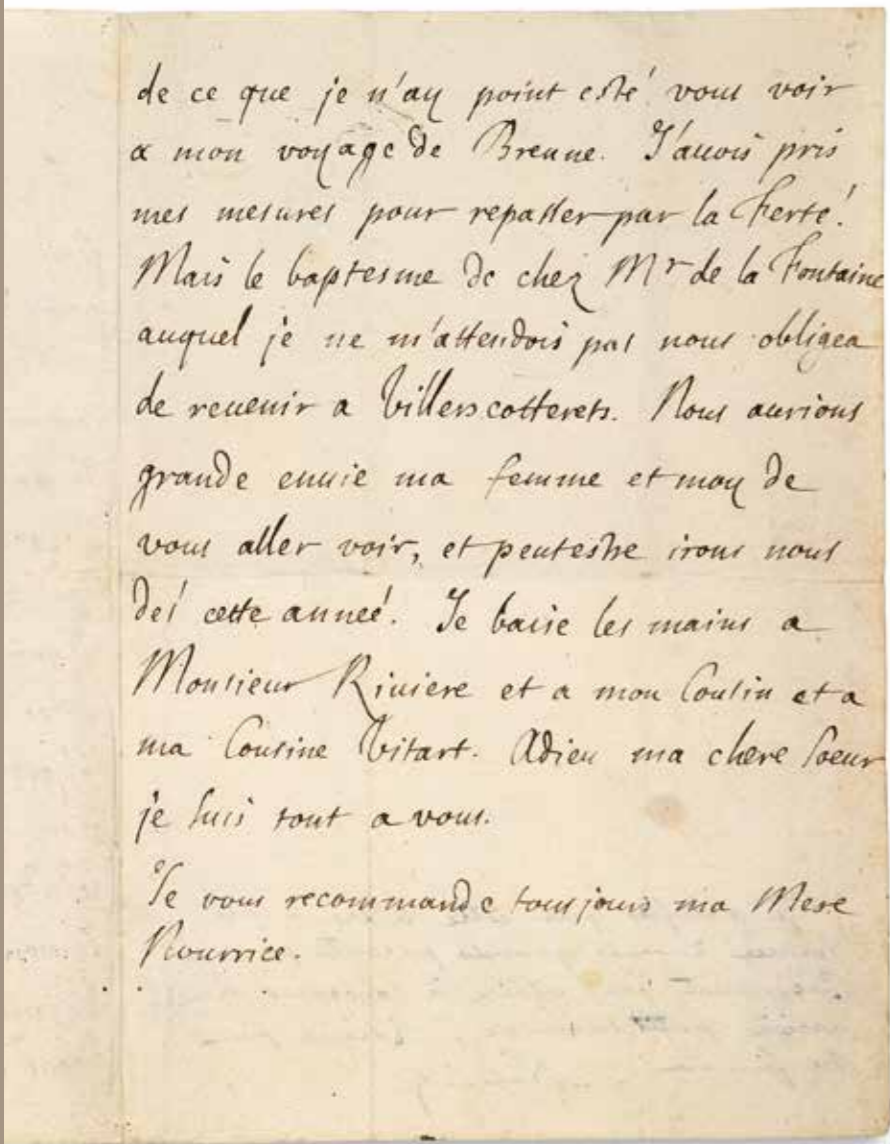 de ce que je n'ay point esté vous voir
a mon voyage de Breune. J'auois pris
mes mesures pour repasser par la Ferté.
Mais le baptesme de chez Mr de la Fontaine
auquel je ne m'attendois pas nous obligea
de reuenir a Villerscotterets. Nous aurions
grande enuie ma femme et moy de
vous aller voir, et peutestre irons nous
des cette année. Je baise les mains a
Monsieur Riuiere et a mon Cousin et a
ma Cousine Vitart. Adieu ma chere Soeur
je suis tout a vous.
Je vous recommande tousjours ma Mere
Nourrice.